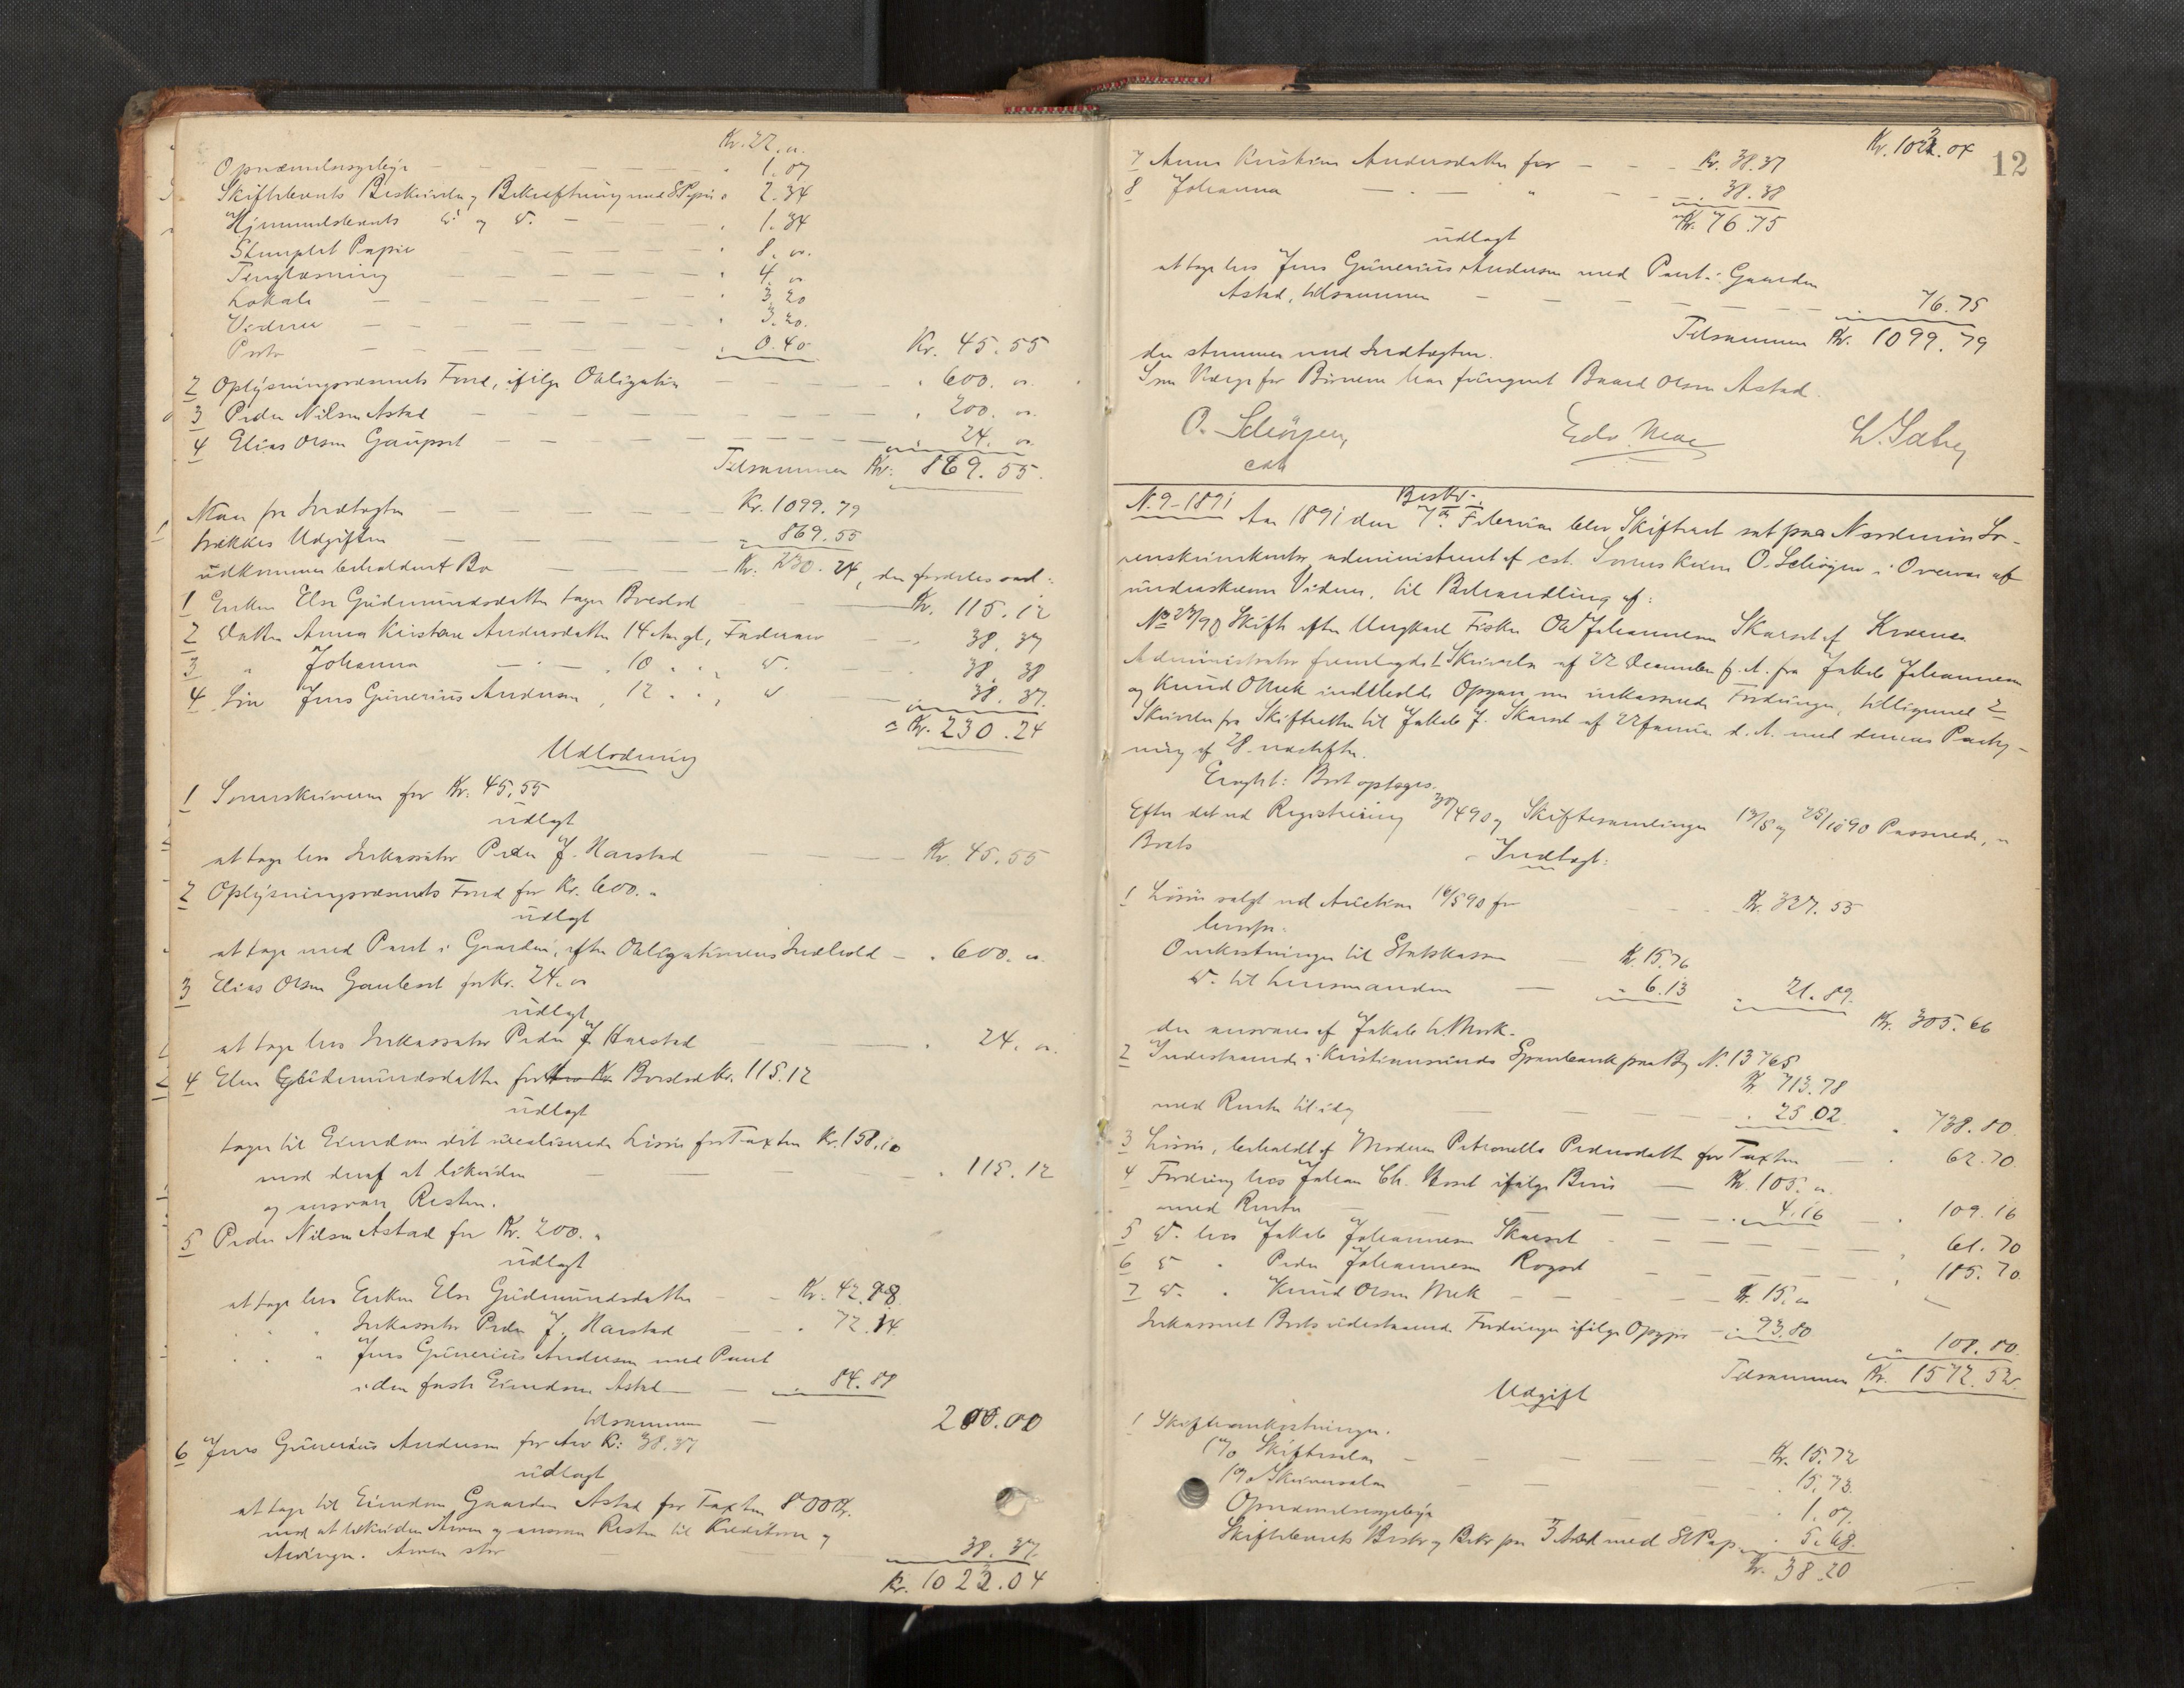 Kr. 22. "
Opnævnelsesgebyr — " 1.07
Skiftebrevets Beskrivelse og Bekræftning med St Papir " 2.34
Hjemmelsbrevets d° og d°. — " 1.34
Stemplet Papir " 8. "
Tinglæsning " 4. "
Lokale " 3.20
Vidner " 3.20.
Porto " 0.40 Kr. 45.55
2 Oplysningsvæsenets Fond, ifølge Obligation " 600. "
3 Peder Nilsen Astad " 200. "
4 Elias Olsen Gaupset " 24. "
Tilsammen Kr. 869.55.
Naar fra Indtægten Kr. 1099.79
trækkes Udgiften " 869.55
udkommer beholdent Bo Kr. 230.24, der fordeles saal:
1 Enken Else Gudmundsdatter tager Boeslod Kr. 115.12
2 Datter Anna Kristine Andersdatter 14 Aar gl, Fædrearv " 38.37
3 " Johanna — " — , 10 " " , d°. 38.38
4 Søn Jens Gunerius Andersen, 12 " " , d° 38.37.
= Kr. 230.24
Udlodning
1 Sorenskriveren for Kr. 45,55
udlagt
at tage hos Inkassator Peder J. Harstad Kr. 45.55
2 Oplysningsvæsenets Fond for Kr. 600. "
udlagt
at tage med Pant i Gaarden, efter Obligationens Indhold — " 600. "
3 Elias Olsen Gaubset for Kr. 24. "
udlagt
at tage hos Inkassator Peder J. Harstad " 24. "
4 Else Gudmundsdatter for Boeslod Kr. 115.12
udlagt
tager til Eiendom det urealiserede Løsøre for Taxten Kr. 158.10
mod deraf at likvidere " 115.12
og ansvare Resten.
5 Peder Nilsen Astad for Kr. 200. "
udlagt
at tage hos Enken Else Gudmundsdatter Kr. 42.98
" " " Inkassator Peder J. Harstad " 72.14
" " " Jens Gunerius Andersen med Pant
i den faste Eiendom Astad " 84.88
tilsammen — 200.00
6 Jens Gunerius Andersen for Arv Kr: 38.37
udlagt
at tage til Eiendom Gaarden Astad for Taxten 800 Kr.
mod at likvidere Arven og ansvare Resten til Kreditorer og
Arvinger. Arven stor 38.37.
Kr. 1023.04
Kr. 1023.04
12
7 Anna Kristine Andersdatter for Kr. 38.37
8 Johanna — " — " 38.38
Kr. 76.75
udlagt
at tage hos Jens Gunerius Andersen med Pant i Gaarden
Astad, tilsammen " 76.75
Tilsammen Kr. 1099.79
der stemmer med Indtægten.
Som Værge for Børnene har fungeret Baard Olsen Astad.
O. Schögen,
cst.
Beskr.
N. 9-1891 Aar 1891 den 7de Februar blev Skifteret sat paa Nordmøre So-
renskriverkontor administreret af cst. Sorenskriver O. Schögen i Overvær af
underskrevne Vidner, til Behandling af:
No 27/90 Skifte efter Ungkarl Fisker Ole Johannesen Skarset af Kværnes
Administrator fremlagde 1 Skrivelse af 22 December f. A. fra Jakob Johannesen
og Knud O Mek indeholdende Opgave over inkasserede Fordringer, tilligemed 2
Skrivelser fra Skifteretten til Jakob J. Skarset af 22 Januar d. A. med dennes Paateg-
ning af 28. næstefter.
Eragtet: Boet optages.
Efter det ved Registrering 30/4 90 og Skiftesamlinger 13/5 og 25/10 90 Passerede, er
Boets
Indtægt:
1 Løsøre solgt ved Auction 16/5 90 for Kr. 327.55
herfra:
Omkostninger til Statskassen — Kr. 15.76
d°. til Lensmanden — " 6.13 " 21.89.
Kr. 305.66
der ansvares af Jakob H. Mork.
2 Indestaaende i Kristiansunds Sparebank paa Bog N. 13765
Kr 713.78
med Renter til idag " 25.02 " 738.80.
3 Løsøre, beholdt af Moderen Petronelle Pedersdatter for Taxten " 62.70.
4 Fordring hos Johan Chr. Boset ifølge Bevis — Kr. 105. "
med Renter " 4.16 " 109.16
5 d°. hos Jakob Johannesen Skarset " 61.70
6 d° " Peder Johannesen Rogset " 185.70.
7 d°. " Knud Olsen Mek Kr. 15. "
Inkasseret Boets udestaaende Fordringer ifølge Opgjør " 93.80 " 108.80.
Tilsammen Kr. 1572.52.
Udgift
1 Skifteomkostninger.
1% Skiftesalær Kr. 15.72
1% Skriversalær " 15.73.
Opnævnelsesgebyr " 1.07.
Skiftebrevets Beskr og Bekr paa 3 Ark med St Pap " 5.68.
Kr. 38.20